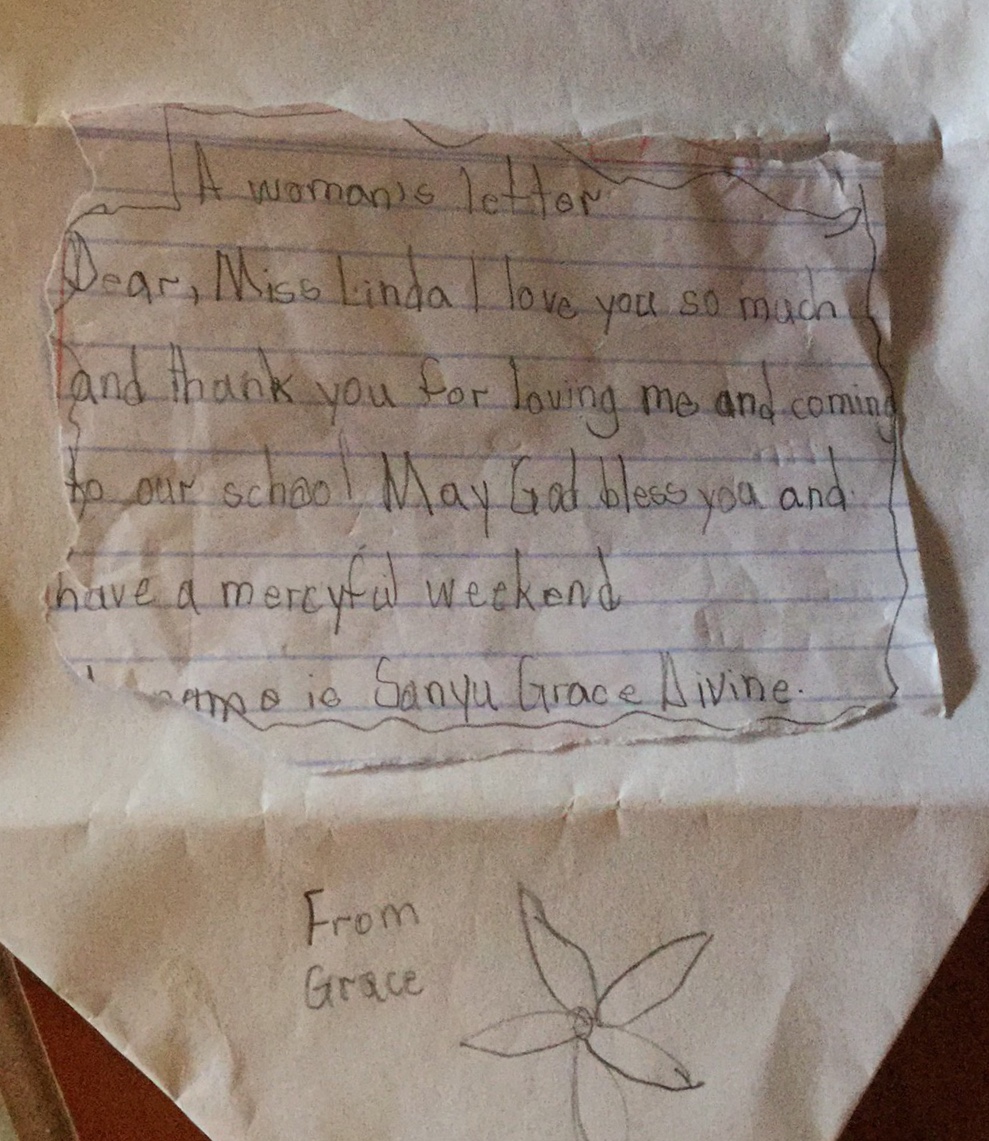 A woman's letter
Dear, Miss Linda I love you so much
and thank you for loving me and coming
to our school May God bless you and
have a mercyful weekend
name is Sanyu Grace Divine.
From
Grace